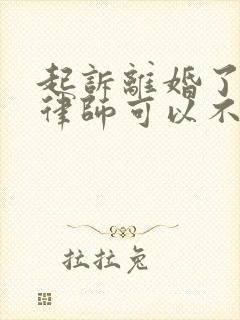 起訴離婚了
律師可以不
拉拉兔